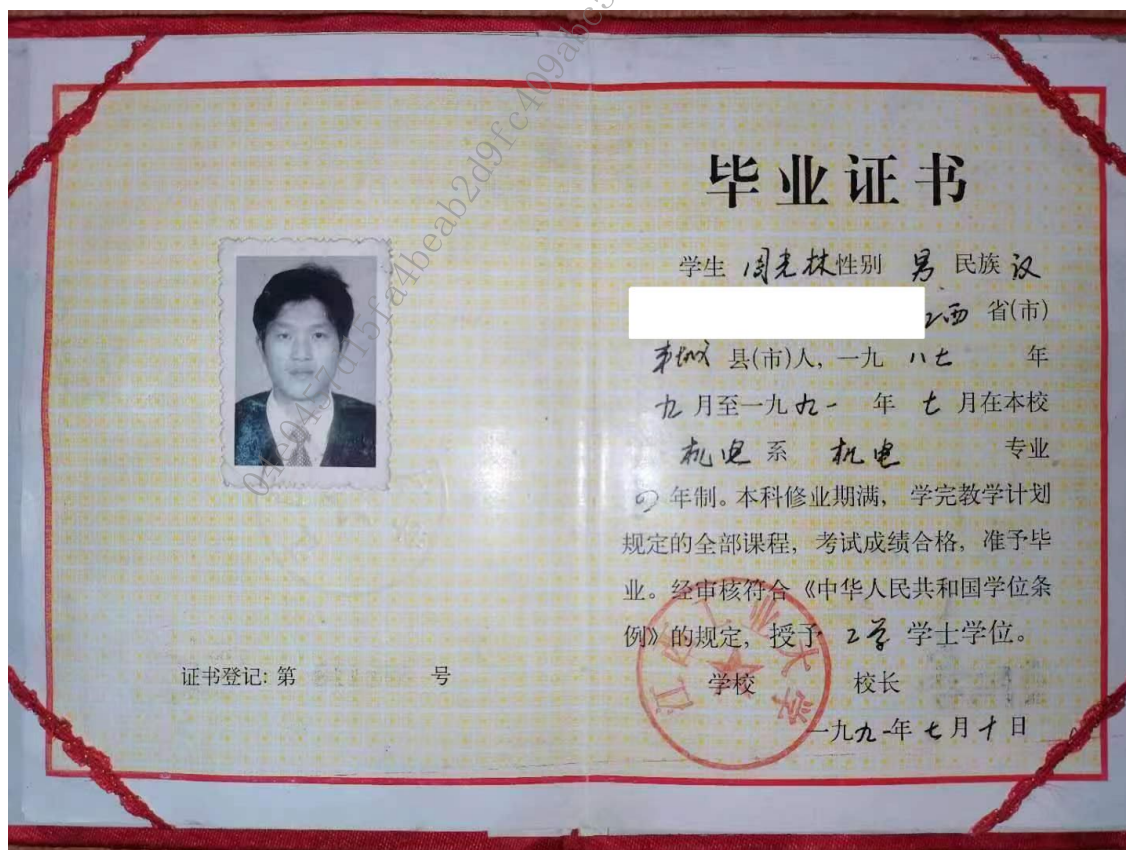 毕业证书
学生 周光林 性别 男 民族 汉
江西 省(市)
县(市)人，一九八七 年
九月至一九九一 年 七 月在本校
机电 系 机电 专业
四年制。本科修业期满，学完教学计划
规定的全部课程，考试成绩合格，准予毕
业。经审核符合《中华人民共和国学位条
例》的规定，授予 工学 学士学位。
学校 校长
一九九一年七月十日
江西工业大学
证书登记: 第 号